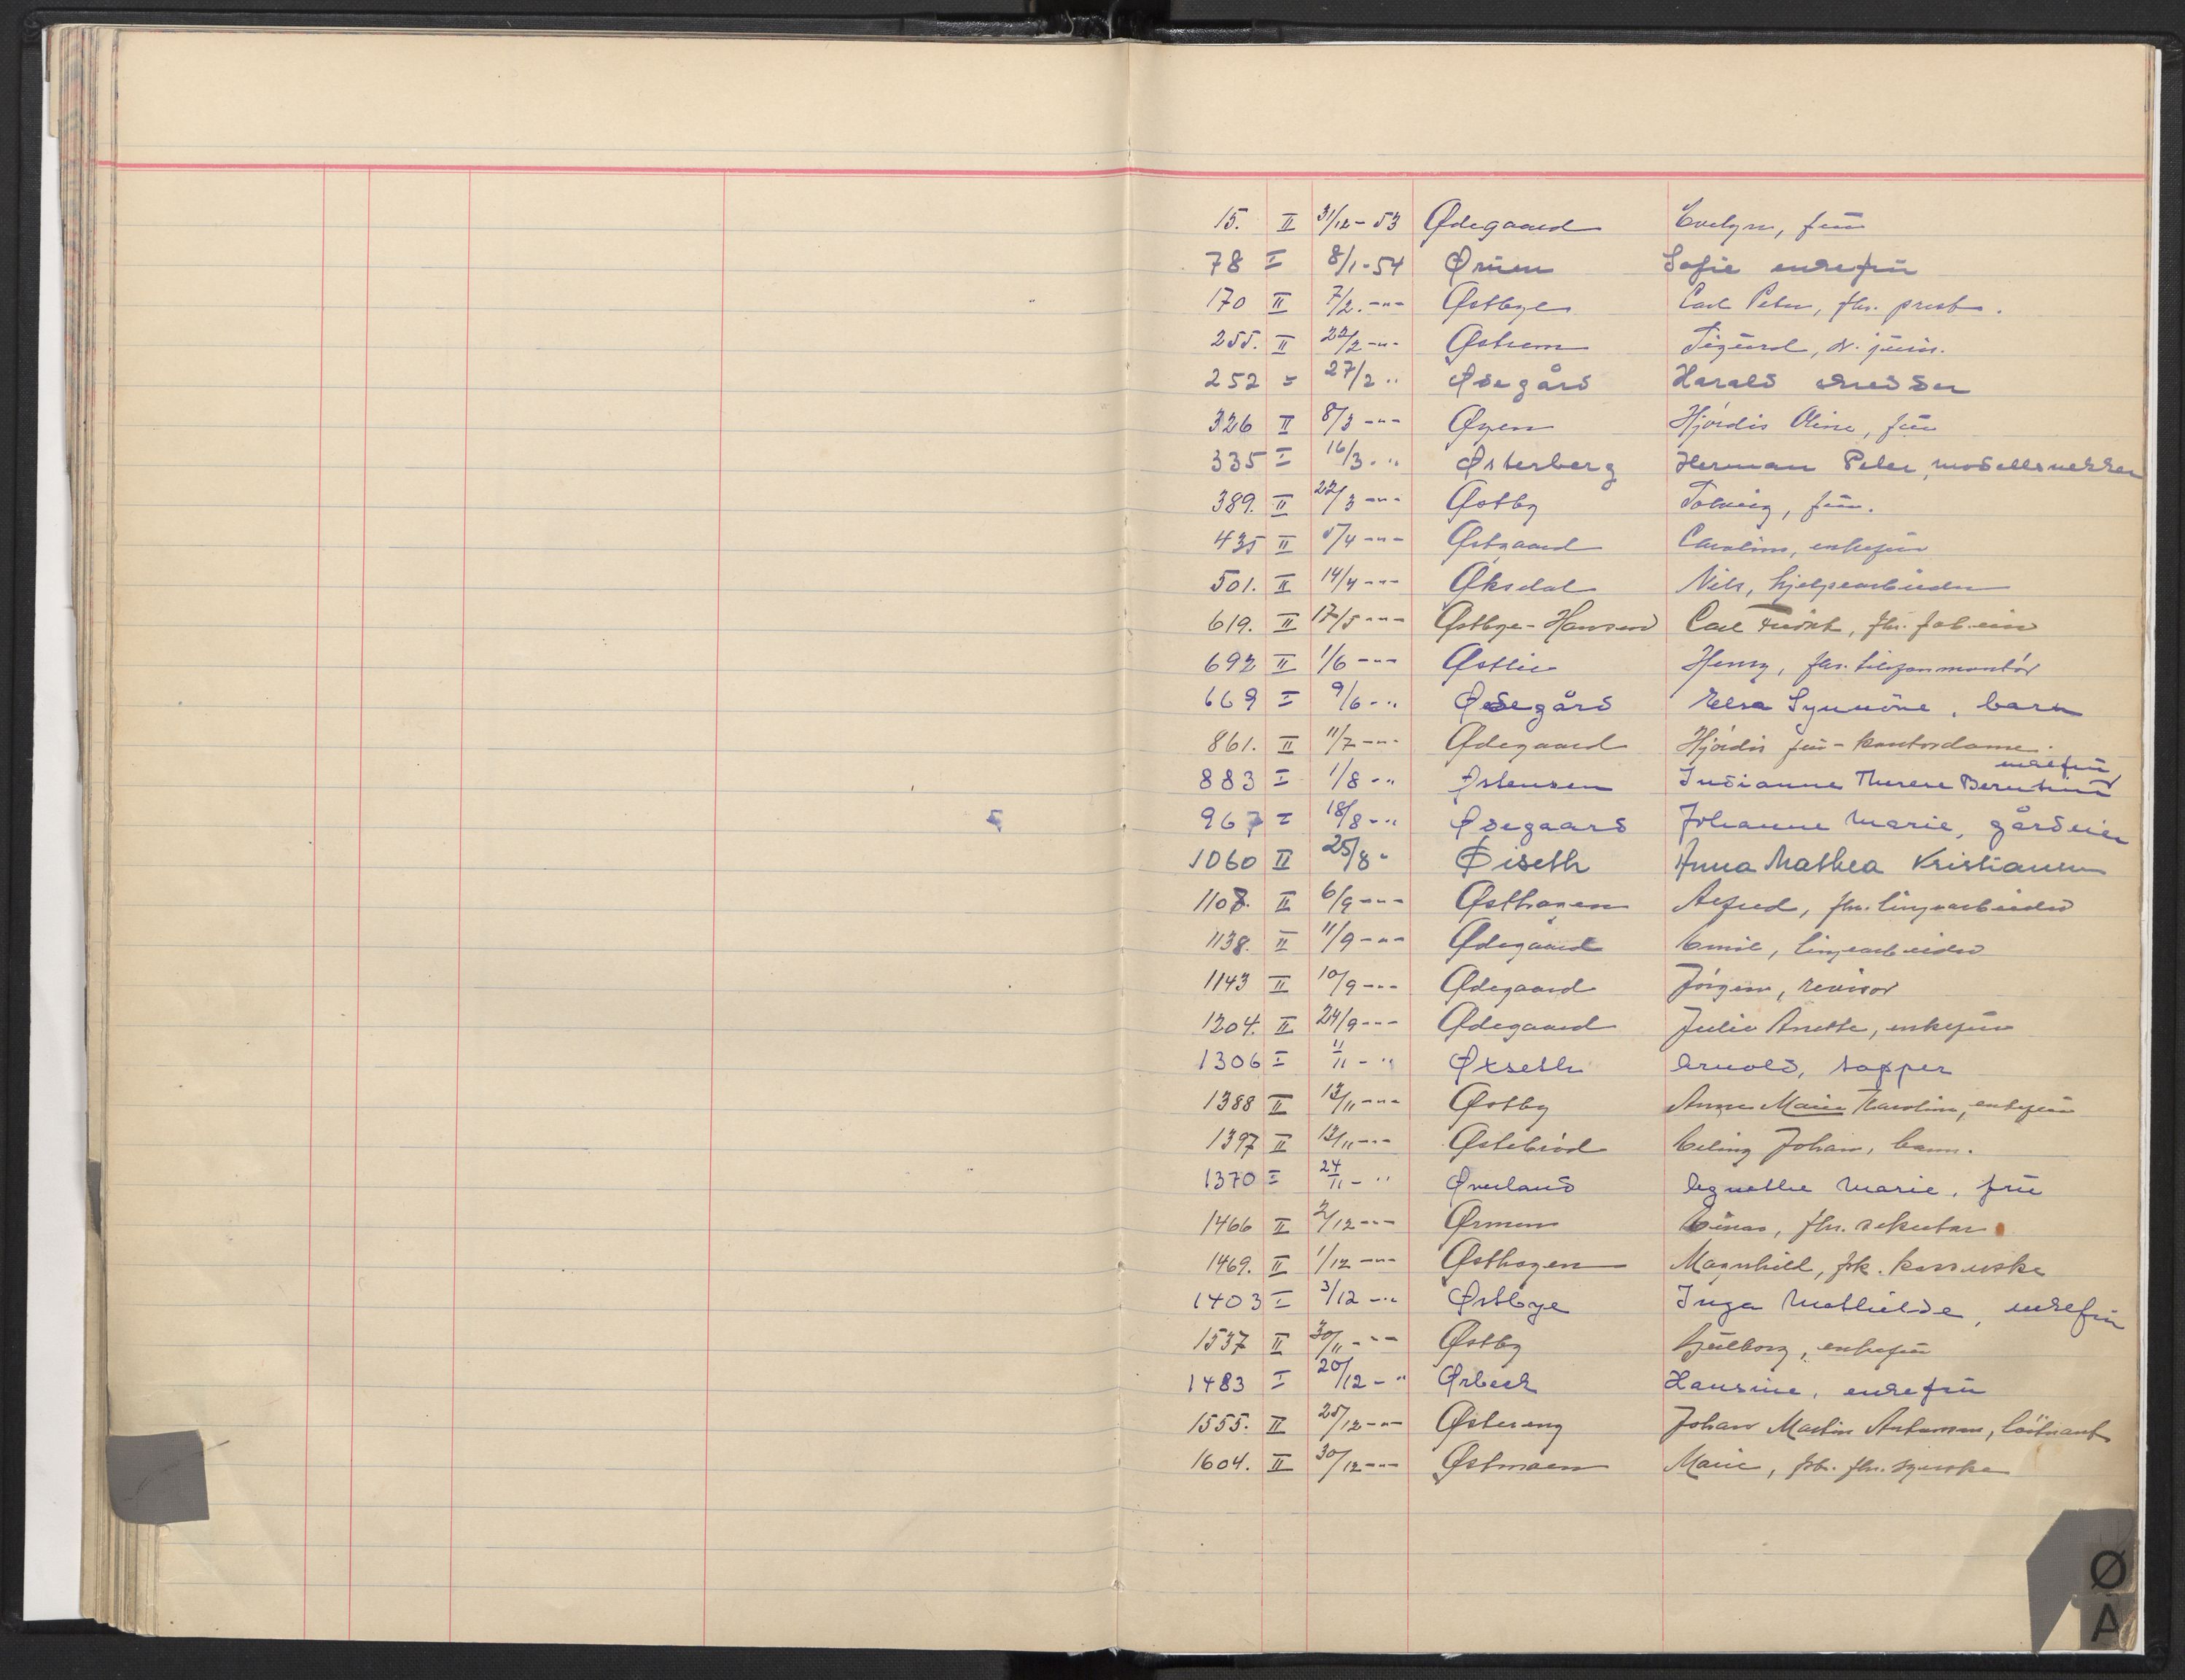 15. II 31/12 - 53 Ødegaard Evelyn, frü
78 I 8/1 - 54 Ørüen Sofie enkefrü
170 II 7/2. -"- Østbye Carl Peter, fhv. prest.
255. II 22/2 -"- Østrem Sigürd, dr. jüris.
252 " 27/2 " Ødegård Harald snedker
326 II 8/3 -"- Øyen Hjördis Oline, frü
335 I 16/3 - " Østerberg Herman Peter, modellsnekker
389. II 22/3 -"- Østby Solveig, frü.
435 II 5/4 -"- Østgaard Caroline, enkefrü
501. II 14/4 -"- Øksdal Nils, hjelpearbeider
619. II 17/5 -"- Østbye-Hansen Carl, fhv.
692 II 1/6 -"- Østlie Henry, fhv. telefonmontör
669 I 9/6 - " Ødegård Elsa Synnöve, barn
861. II 11/7 -"- Ødegaard Hjördis frü - kontordame.
enkefrü
883 I 1/8 - " Østensen Indianna Therese Berntine
967 I 18/8 - " Ødegaard Johanne Marie, gårdeier
1060 II 25/8 " Øiseth Anna Mathea Kristiansen
1108. II 6/9 -"- Østhagen Alfred, fhv. linjearbeider
1138. II 11/9 -"- Ødegaard Emil, linjearbeider
1143 II 10/9 -"- Ødegaard Jörgen, revisor
1204. II 24/9 -"- Ødegaard Julie Anette, enkefrü
1306 I 1/11 - " Øxseth Arnold, tapper
1388 II 13/11 -"- Østby Anna Marie Karoline, enkefrü
1397 II 13/11 -"- Østebröd Erling Johan, barn.
1370 I 24/11 - " Øverland Agnethe Marie, frü
1466 II 2/12 -"- Ørmen Einar, fhv. sekretær
1469. II 1/12 -"- Østhagen Magnhild, frk. kassererske
1403 I 3/12 - " Østbye Inga Mathilde, enkefrü
1537 II 30/11 -"- Østby Gjølborg, enkefrü
1483 I 20/12 - " Ørbeck Hansine, enkefrü
1555. II 25/12 -"- Østereng Johan Martin Antonsen, löitnant
1604. II 30/12 -"- Østmoen Marie, frk. fhv. syerske
Ø
A